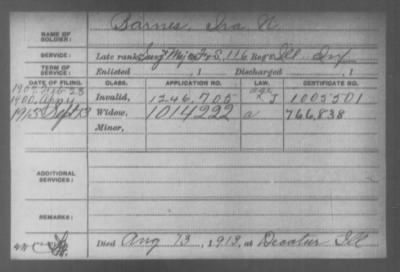 NAME OF SOLDIER: Barnes, Ira N
SERVICE: Late rank, Surg & Maj, F & S, 116 Reg't Ill. Inf
TERM OF SERVICE: Enlisted , 1 Discharged , 1
DATE OF FILING. CLASS. APPLICATION NO. CERTIFICATE NO.
1907 Feb 23
1900, Aug 4 Invalid, 1246,705 J 1005501
1913 Sept 3 Widow, 1014222 a 766,838
Minor,
ADDITIONAL SERVICES:
REMARKS:
Died Aug 13, 1913, at Decatur Ill